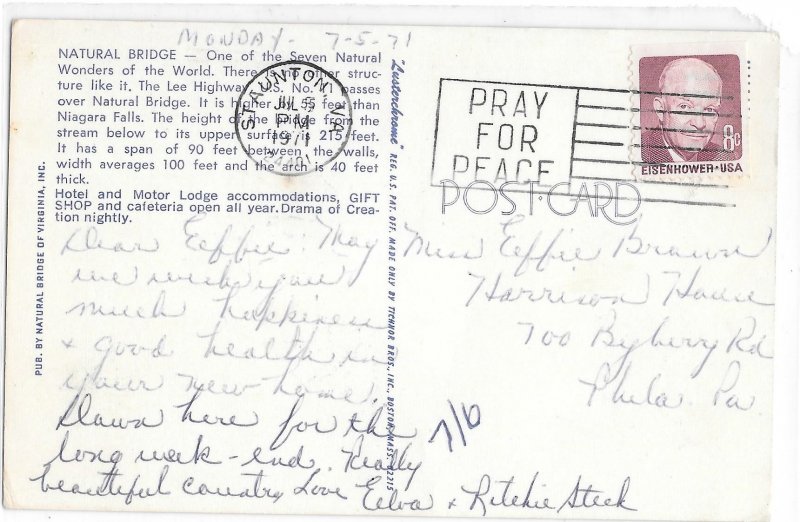 MONDAY - 7-5-71
NATURAL BRIDGE — One of the Seven Natural
Wonders of the World. There is no other struc-
ture like it. The Lee Highway, U.S. No. 11 passes
over Natural Bridge. It is higher by 55 feet than
Niagara Falls. The height of the bridge from the
stream below to its upper surface is 215 feet.
It has a span of 90 feet between the walls,
width averages 100 feet and the arch is 40 feet
thick.
Hotel and Motor Lodge accommodations, GIFT
SHOP and cafeteria open all year. Drama of Crea-
tion nightly.
PUB. BY NATURAL BRIDGE OF VIRGINIA, INC.
"Lusterchrome" REG. U.S. PAT. OFF. MADE ONLY BY TICHNOR BROS., INC., BOSTON, MASS. 02215
STAUNTON, VA
JUL
PM
1971
24401
PRAY
FOR
PEACE
8c
EISENHOWER·USA
POST CARD
Dear Effie, May
we wish you
much happiness
& good health in
your new home.
Down here for the
long week-end. Really
beautiful country Love Elva & Ritchie Steck
Miss Effie Brown
Harrison House
700 Byberry Rd
Phila. Pa.
7/6